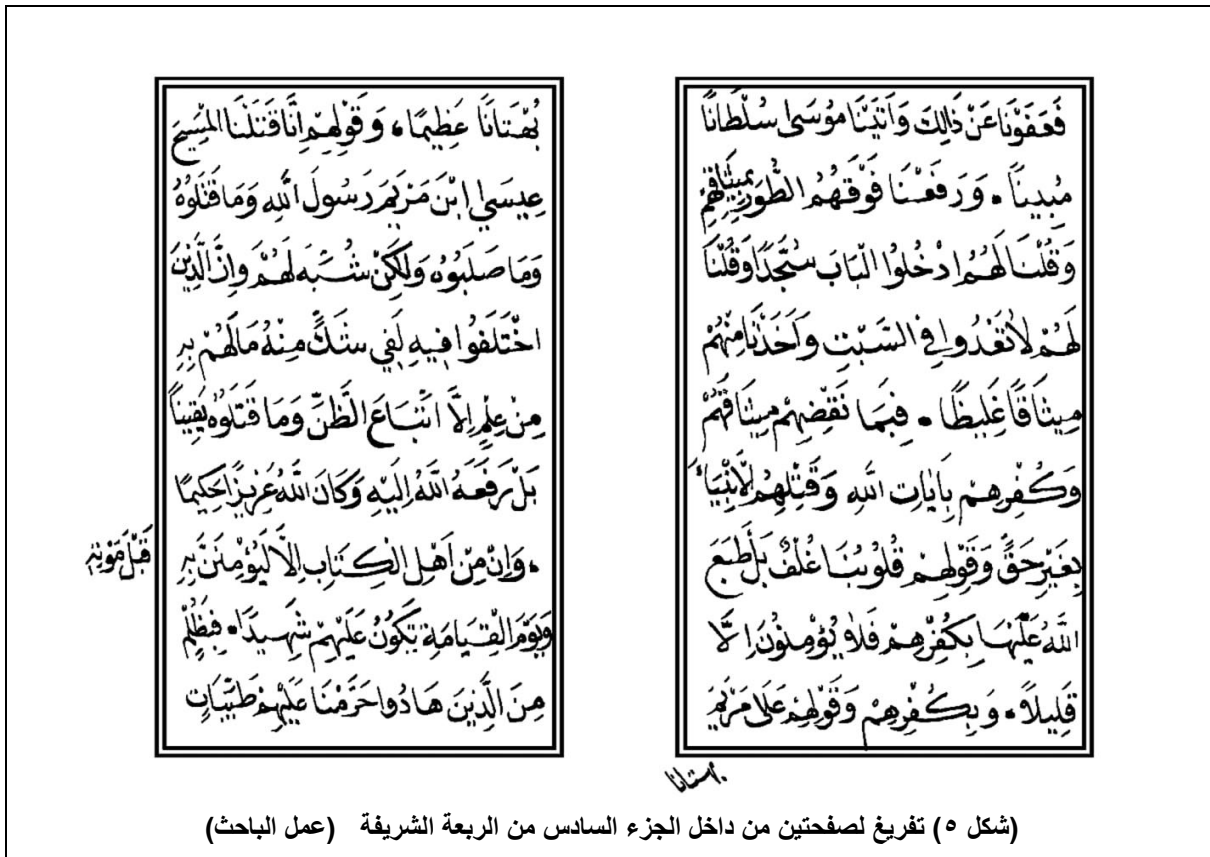 فَعَفَوْنَا عَنْ ذَالِكَ وَاَتَيْنَا مُوسَى سُلْطَانًا
مُبِينًا ۰ وَرَفَعْنَا فَوْقَهُمُ الطُّورَ بِمِيثَاقِهِمْ
وَقُلْنَا لَهُمُ ادْخُلُوا الْبَابَ سُجَّدًا وَقُلْنَا
لَهُمْ لَا تَعْدُوا فِي السَّبْتِ وَاَخَذْنَا مِنْهُمْ
مِيثَاقًا غَلِيظًا ۰ فَبِمَا نَقْضِهِمْ مِيثَاقَهُمْ
وَكُفْرِهِمْ بِاَيَاتِ اللّٰهِ وَقَتْلِهِمُ لْاَنْبِيَاءَ
بِغَيْرِ حَقٍّ وَقَوْلِهِمْ قُلُوبُنَا غُلْفٌ بَلْ طَبَعَ
اللّٰهُ عَلَيْهَا بِكُفْرِهِمْ فَلَا يُؤْمِنُونَ اِلَّا
قَلِيلًا ۰ وَبِكُفْرِهِمْ وَقَوْلِهِمْ عَلَى مَرْيَمَ
بهتانا
بُهْتَانًا عَظِيمًا ۰ وَقَوْلِهِمْ اِنَّا قَتَلْنَا الْمَسِيحَ
عِيسَي ابْنَ مَرْيَمَ رَسُولَ اللّٰهِ وَمَا قَتَلُوهُ
وَمَا صَلَبُوهُ وَلَكِنْ شُبِّهَ لَهُمْ وَاِنَّ الَّذِينَ
اخْتَلَفُوا فِيهِ لَفِي شَكٍّ مِنْهُ مَا لَهُمْ بِهِ
مِنْ عِلْمٍ اِلَّا اتِّبَاعَ الظَّنِّ وَمَا قَتَلُوهُ يَقِينًا
بَلْ رَفَعَهُ اللّٰهُ اِلَيْهِ وَكَانَ اللّٰهُ عَزِيزًا حَكِيمًا
۰ وَاِنْ مِنْ اَهْلِ الْكِتَابِ اِلَّا لَيُؤْمِنَنَّ بِهِ
قَبْلَ مَوْتِهِ
وَيَوْمَ الْقِيَامَةِ يَكُونُ عَلَيْهِمْ شَهِيدًا ۰ فَبِظُلْمٍ
مِنَ الَّذِينَ هَادُوا حَرَّمْنَا عَلَيْهِمْ طَيِّبَاتٍ
(شكل ٥) تفريغ لصفحتين من داخل الجزء السادس من الربعة الشريفة (عمل الباحث)